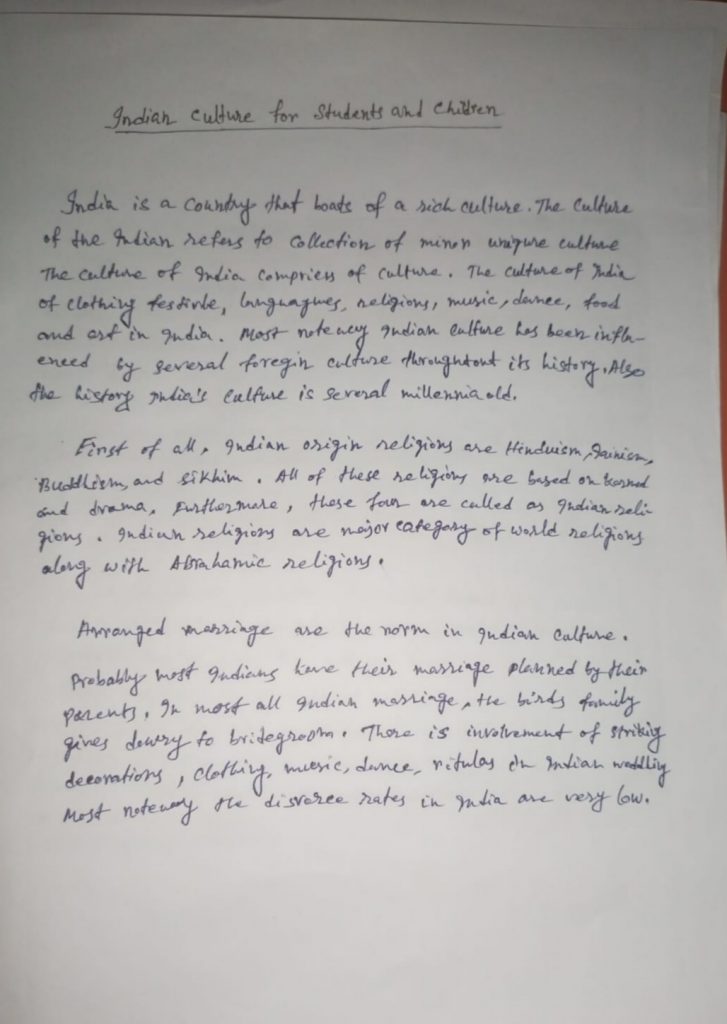 Indian Culture for Students and Children
India is a Country that boats of a rich culture. The Culture
of the Indian refers to Collection of minor uniqure culture
The culture of India Compriess of Culture. The culture of India
of Clothing festivle, languagues, religions, music, dance, food
and art in India. Most notewey Indian Culture has been influ-
enced by several foregin culture throughtout its history. Also
the history India's Culture is several millennia old.
First of all, Indian origin religions are Hinduism, Jainism,
Buddhism, and Sikhim. All of these religions are based on karned
and drama, Furthermare, these four are called as Indian reli-
gions. Indian religions are major category of world religions
along with Abrahamic religions.
Arranged marriage are the norm in Indian Culture.
Probably most Indians have their marriage planned by their
parents, In most all Indian marriage, the birds family
gives dowry to bridegroom. There is involvement of striking
decorations, Clothing, music, dance, ritulas in Indian wedding
Most notewey the disvorce rates in India are very low.